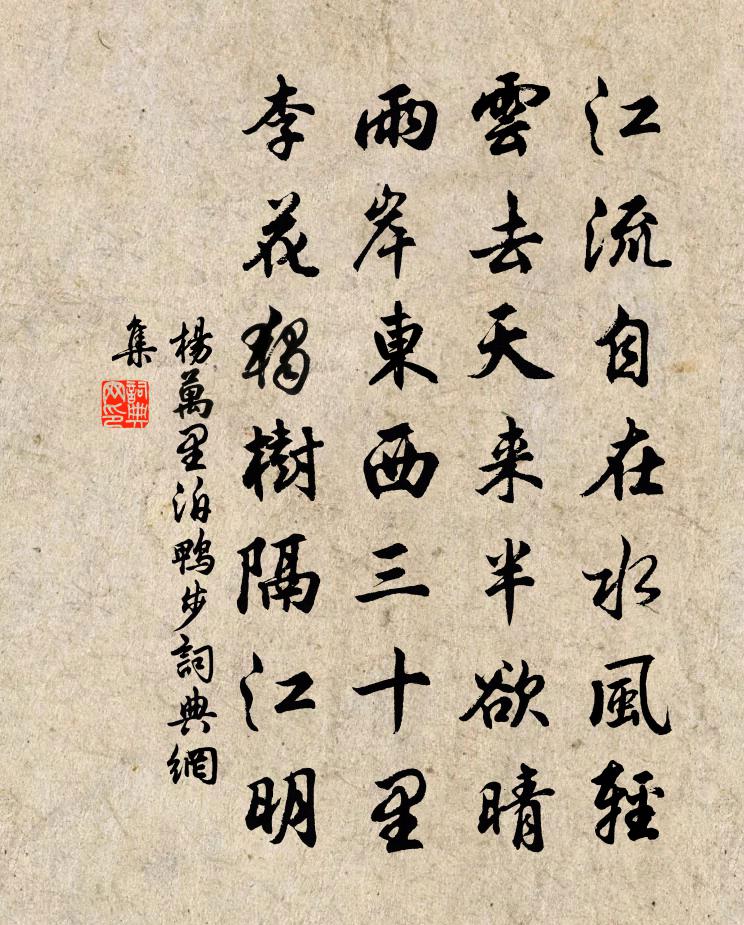 江流自在水風輕
雲去天来半欲晴
兩岸東西三十里
李花獨樹隔江明
楊萬里泊鴨步詞典網
集
詞典
网印